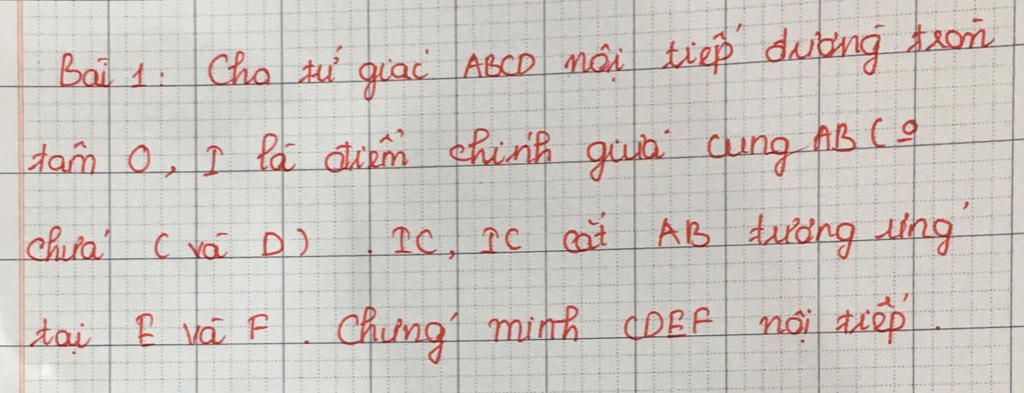 Bài 1: Cho tứ giác ABCD nội tiếp đường tròn
tâm O, I là điểm chính giữa cung AB (o
chứa C và D). IC, IC cắt AB tương ứng
tại E và F. Chứng minh CDEF nội tiếp.